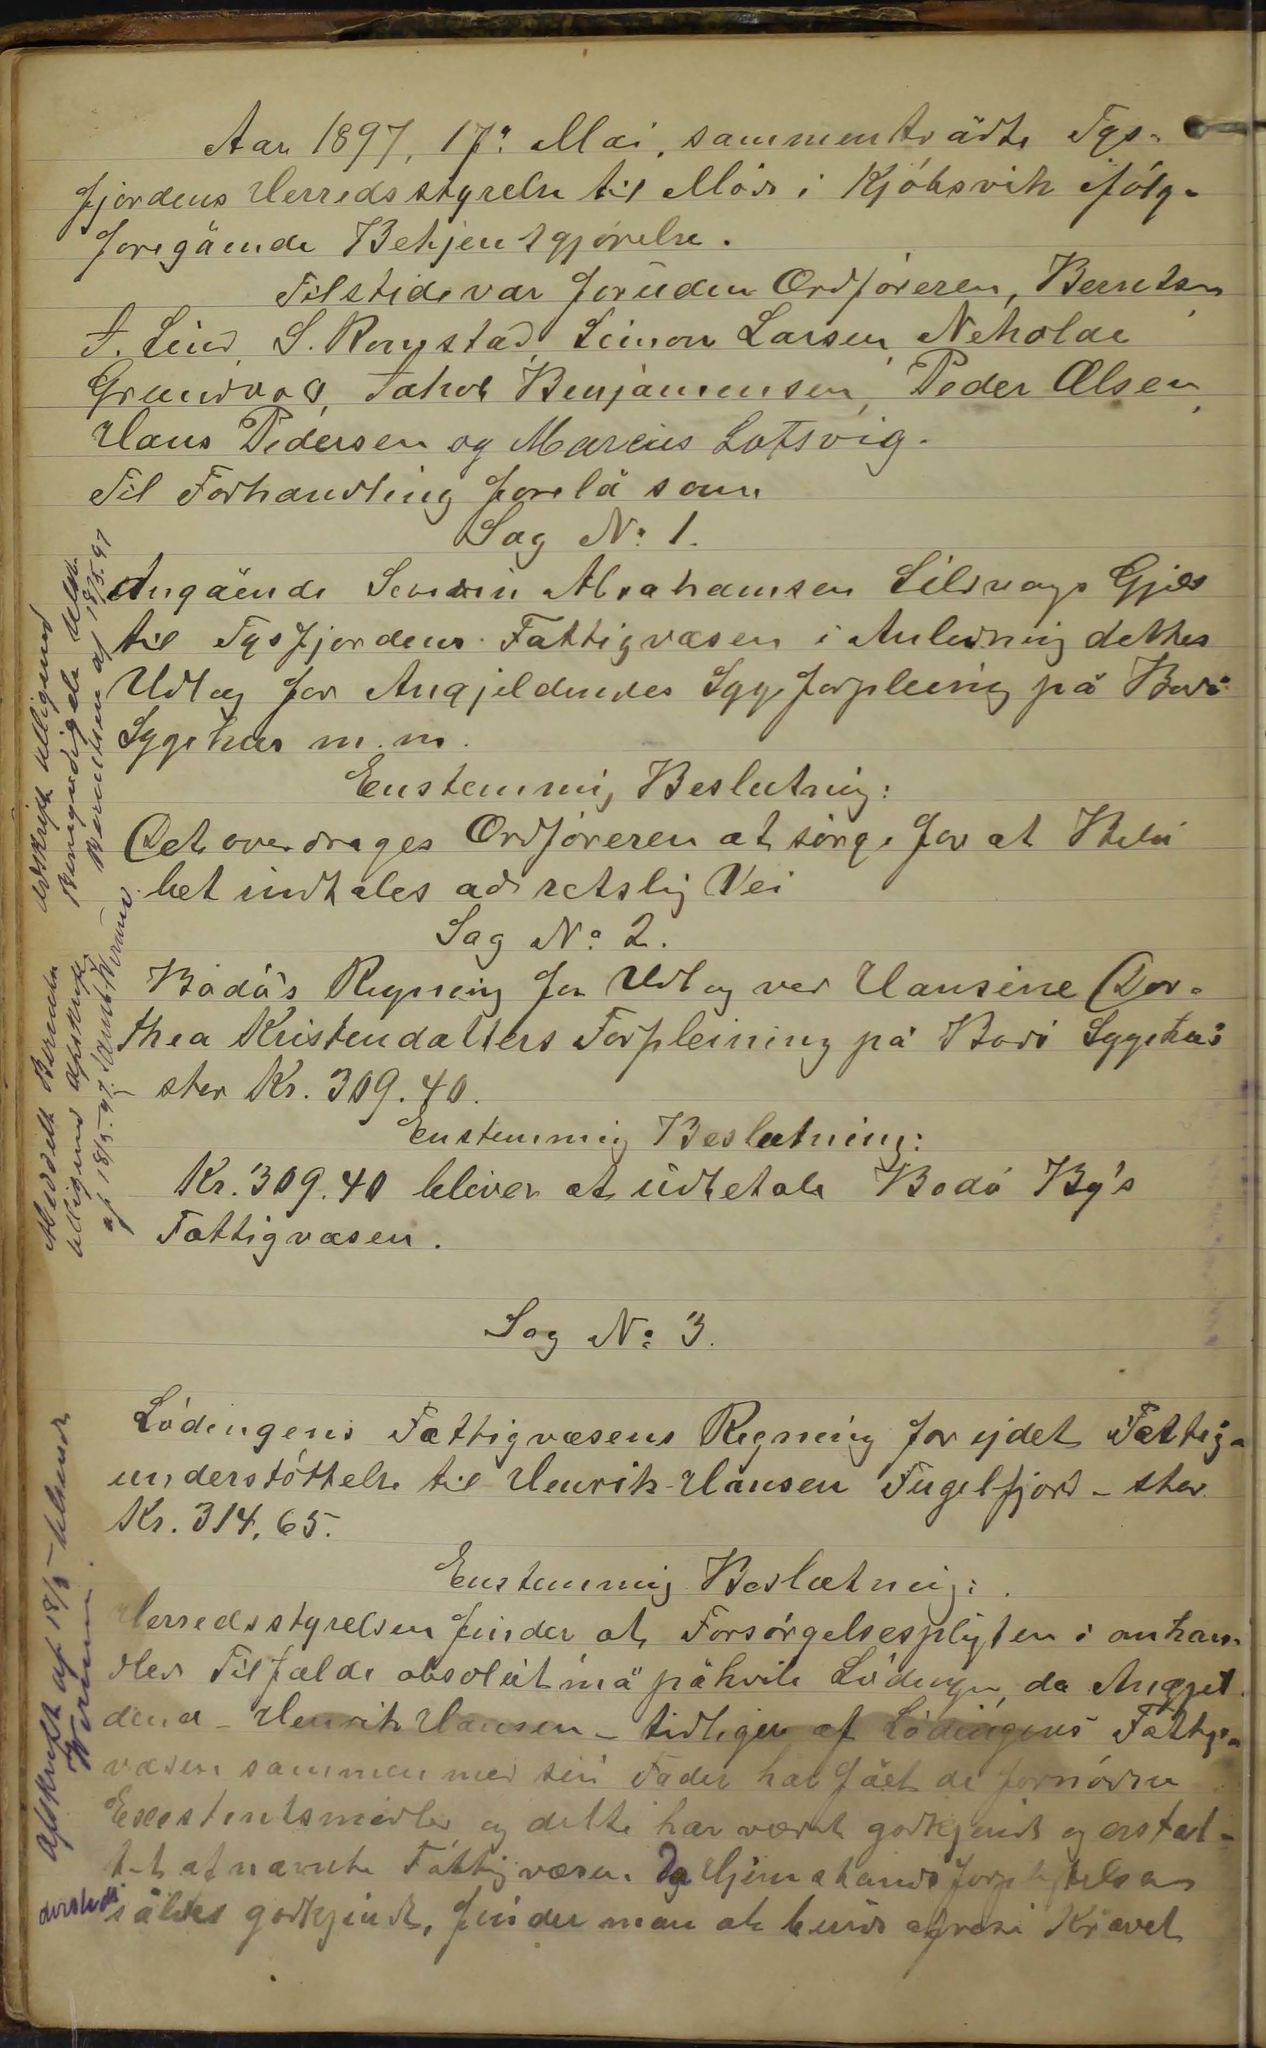 Aar 1897, 17de Mai, sammentrådte Tys-
fjordens Herredsstyrelse til Möde i Kjöbsvik ifölge
foregående Bekjentgjörelse.
Tilstede var foruden Ordföreren, Berntsen,
S. Rongstad, Simon Larsen,
Jakob Benjaminsen, Peder Olsen,
Hans Pedersen og Marcius Lotsvig.
Til Forhandling forelå som
Sag No: 1.
Angående Abrahamsen Gjeld
til Tysfjordens Fattigvæsen i Anledning dettes
Udlæg for Angjeldendes Sygeforpleining på Bodö
Sygehus m.m.
Enstemmig Beslutning:
Det overdrages Ordföreren at sörge for at Belö
bet indtales ad retslig Vei
Sag No: 2.
Bodö's Regning for Udlæg ved Hansine Dor-
thea Kristendatters Forpleining på Bodö Sygehus
- stor Kr. 309.40.
Enstemmig Beslutning:
Kr. 309.40 bliver at udbetale Bodö By's
Fattigvæsen.
Sag No: 3.
Lödingens Fattigvæsens Regning for ydet Fattig-
understöttelse til Henrik Hansen Fugelfjord - stor
Kr. 314,65.
Enstemmig Beslutning:
Herredsstyrelsen finder at Forsörgelsespligten i omhand-
lede Tilfælde absolut må påhvile Lödingen, da Angjel-
dende - Henrik Hansen - tidligere af Lödingens Fattig-
væsen sammen med sin Fader har fået de fornödne
Existentsmidler og dette har været godkjendt og erstat-
tet af nævnte Fattigvæsen. Da Hjemstandsforpligtelsen
således godkjendt, finder man at burde afvise Krævet
Afskrift af 18/5
Meddelt Berntsen
af 18/5-97.
af 18/5.97